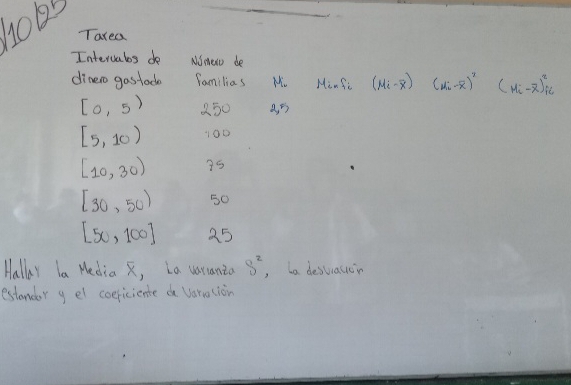 /10/25
Tarea
Intervalos de Número de
dinero gastado familias Mi Mi.fi (Mi-x̄) (Mi-x̄)² (Mi-x̄)²fi
[0, 5) 250 2,5
[5, 10) 100
[10, 30) 75
[30, 50) 50
[50, 100] 25
Hallar la Media x̄, La varianza S², La desviación
estandar y el coeficiente de Variación